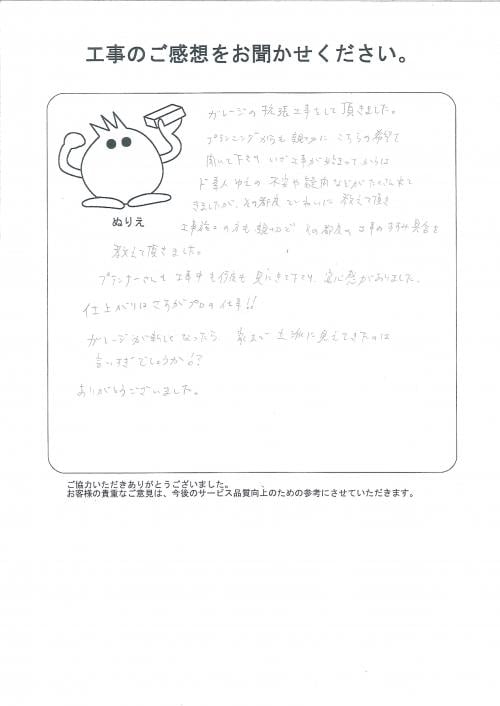 工事のご感想をお聞かせください。
ガレージの拡張工事をして頂きました。
プランニングからも親切に こちらの希望を
聞いて下さり いざ工事が始まってからは
ド素人ゆえの不安や疑問などがたくさん出て
きましたが、その都度ていねいに教えて頂き
ぬりえ
工事施工の方も親切で その都度の工事のすすみ具合を
教えて頂きました。
プランナーさんも工事中も何度も見にきて下さり、安心感がありました。
仕上がりはさすがプロの仕事!!
ガレージが新しくなったら、家まで立派に見えてきたのは
言いすぎでしょうか!?
ありがとうございました。
ご協力いただきありがとうございました。
お客様の貴重なご意見は、今後のサービス品質向上のための参考にさせていただきます。